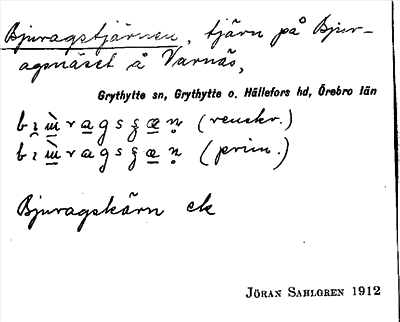 Bjuragstjärnen, tjärn på Bjur-
agsnäset å Varnäs,
Grythytte sn, Grythytte o. Hällefors hd, Örebro län
(renskr.)
(prim.)
Bjuragskärn ek
JÖRAN SAHLGREN 1912